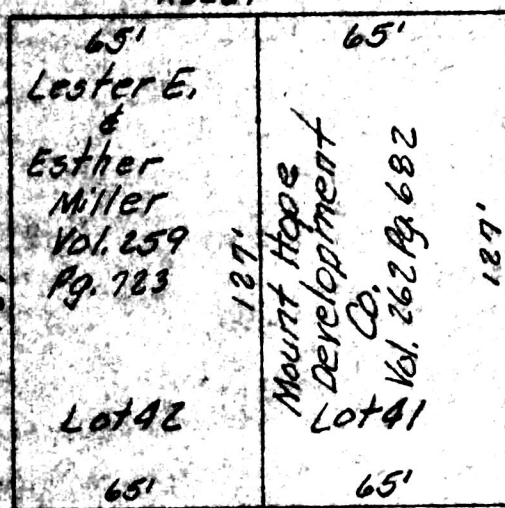 65'
Lester E.
&
Esther
Miller
Vol. 259
Pg. 723
127'
Lot 42
65'
65'
Mount Hope
Development
Co.
Vol. 262 Pg. 682
127'
Lot 41
65'